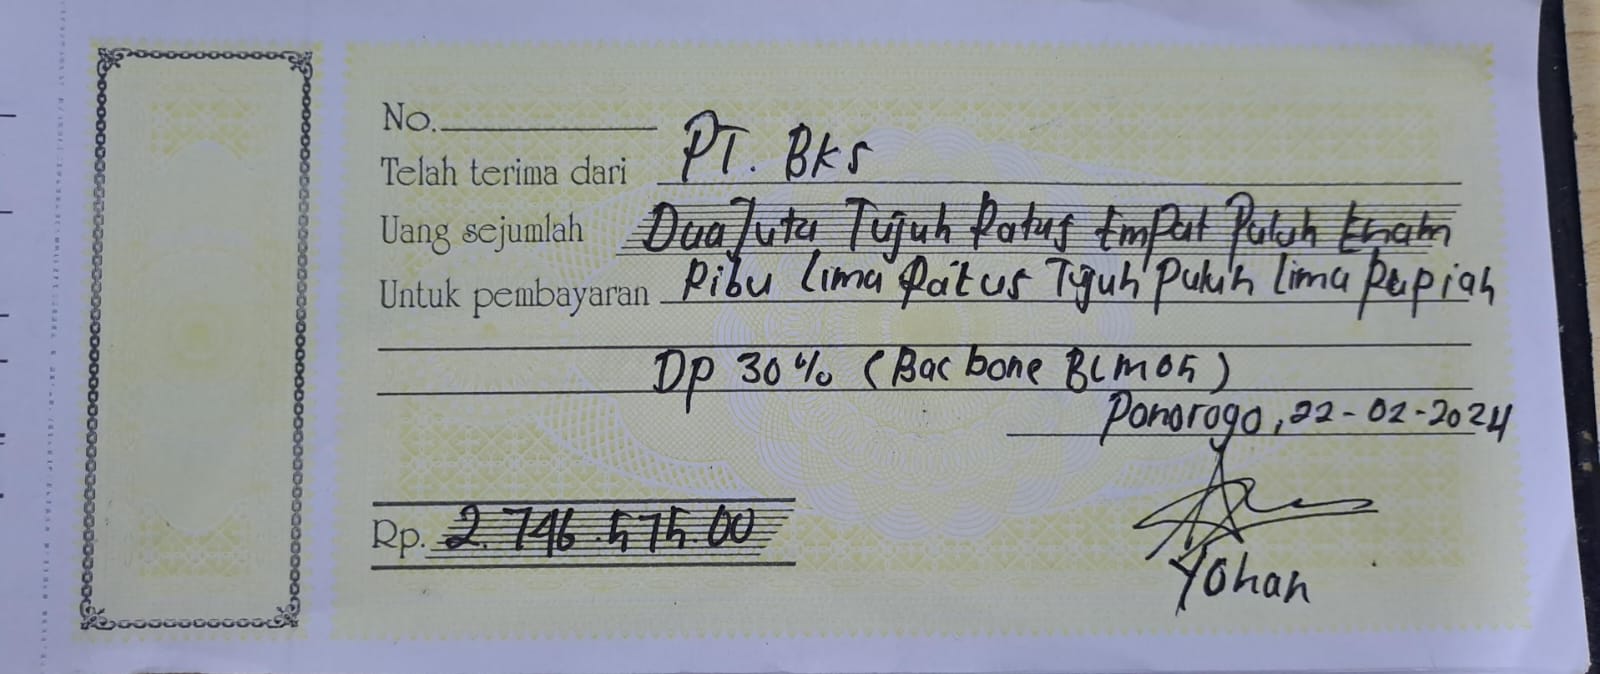 No.
Telah terima dari PT. BKS
Uang sejumlah Dua Juta Tujuh Ratus Empat Puluh Enam
Untuk pembayaran Ribu Lima Ratus Tujuh Puluh Lima Rupiah
DP 30% (Bac bone BLM05)
Ponorogo, 22-02-2024
Rp. 2.746.575.00
Yohan